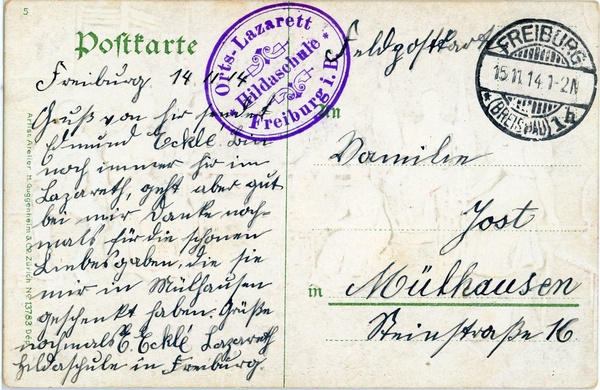 5
Postkarte
Orts-Lazarett
Hildaschule
Freiburg i. B.
*
Feldpostkarte
FREIBURG
15.11.14.1-2N
(BREISGAU)
* 1h
Freiburg. 14.11.14
Gruß von hir sendet
Edmund Ecklé. bin
noch immer hir im
Lazareth, geht aber gut
bei mir Danke noch-
mals für die schönen
Liebesgaben, die sie
mir in Mülhausen
geschenkt haben. Grüße
nochmals E. Ecklé Lazareth
Hildaschule in Freiburg.
An
Familie
Jost
in Mülhausen
Steinstraße 16
Artist. Atelier H. Guggenheim & Co Zürich. No 13783 Dep.